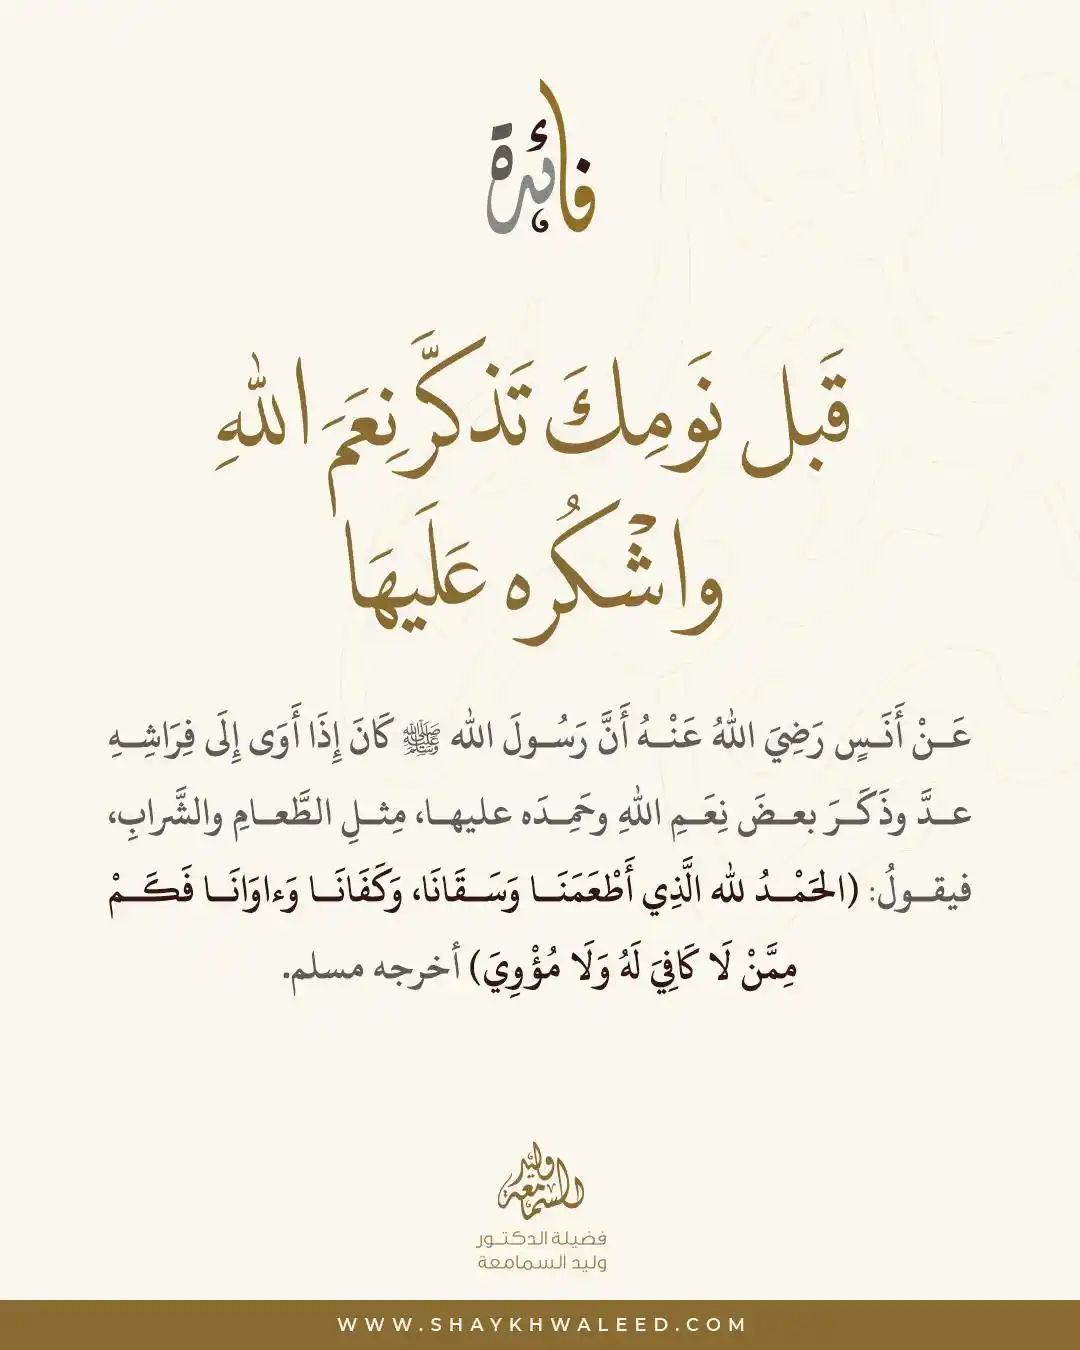 فائدة
قَبل نَومِكَ تَذكَّر نِعَمَ اللهِ
واشْكُره عَلَيهَا
عَنْ أَنَسٍ رَضِيَ اللهُ عَنْهُ أَنَّ رَسُولَ الله ﷺ كَانَ إِذَا أَوَى إِلَى فِرَاشِهِ
عدَّ وذَكَرَ بعضَ نِعَمِ اللهِ وحَمِدَه عليها، مِثلِ الطَّعامِ والشَّرابِ،
فيقولُ: (الحَمْدُ لله الَّذِي أَطْعَمَنَا وَسَقَانَا، وَكَفَانَا وَءاوَانَا فَكَمْ
مِمَّنْ لَا كَافِيَ لَهُ وَلَا مُؤْوِيَ) أخرجه مسلم.
وليد السمامعة
فضيلة الدكتور
وليد السمامعة
WWW.SHAYKHWALEED.COM